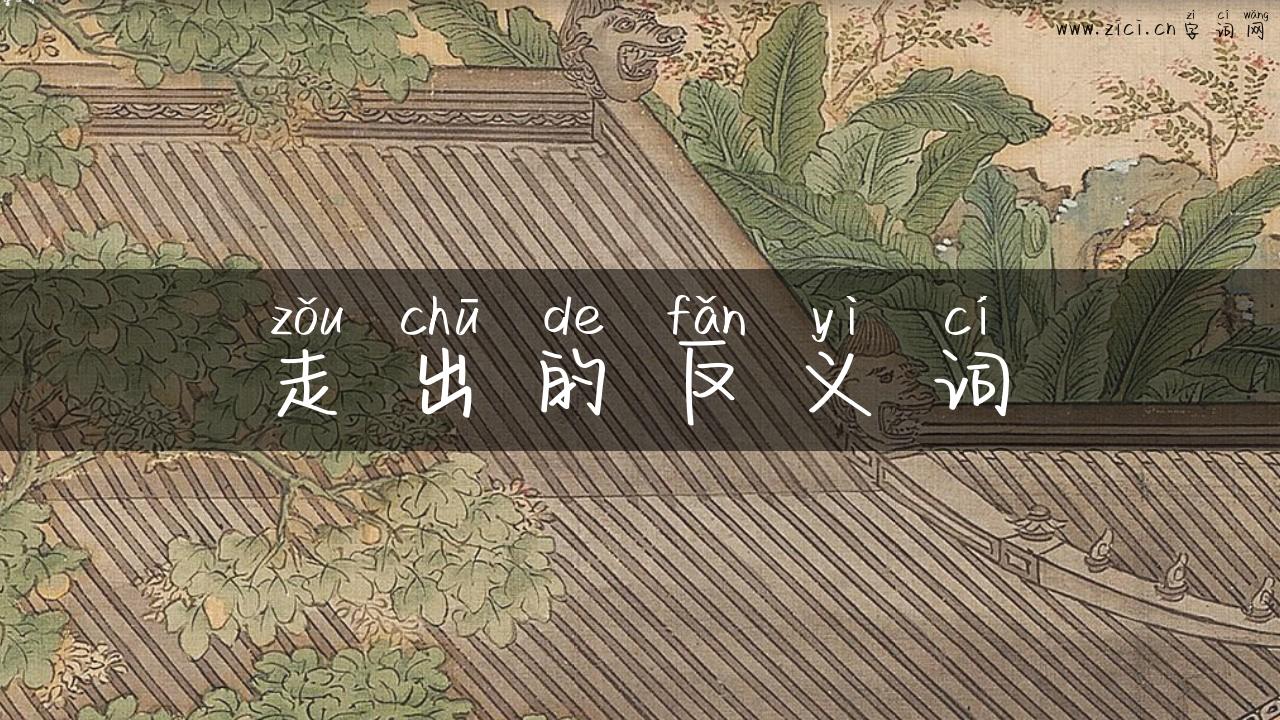 zì cí wǎng
www.zici.cn 字词网
zǒu chū de fǎn yì cí
走出的反义词